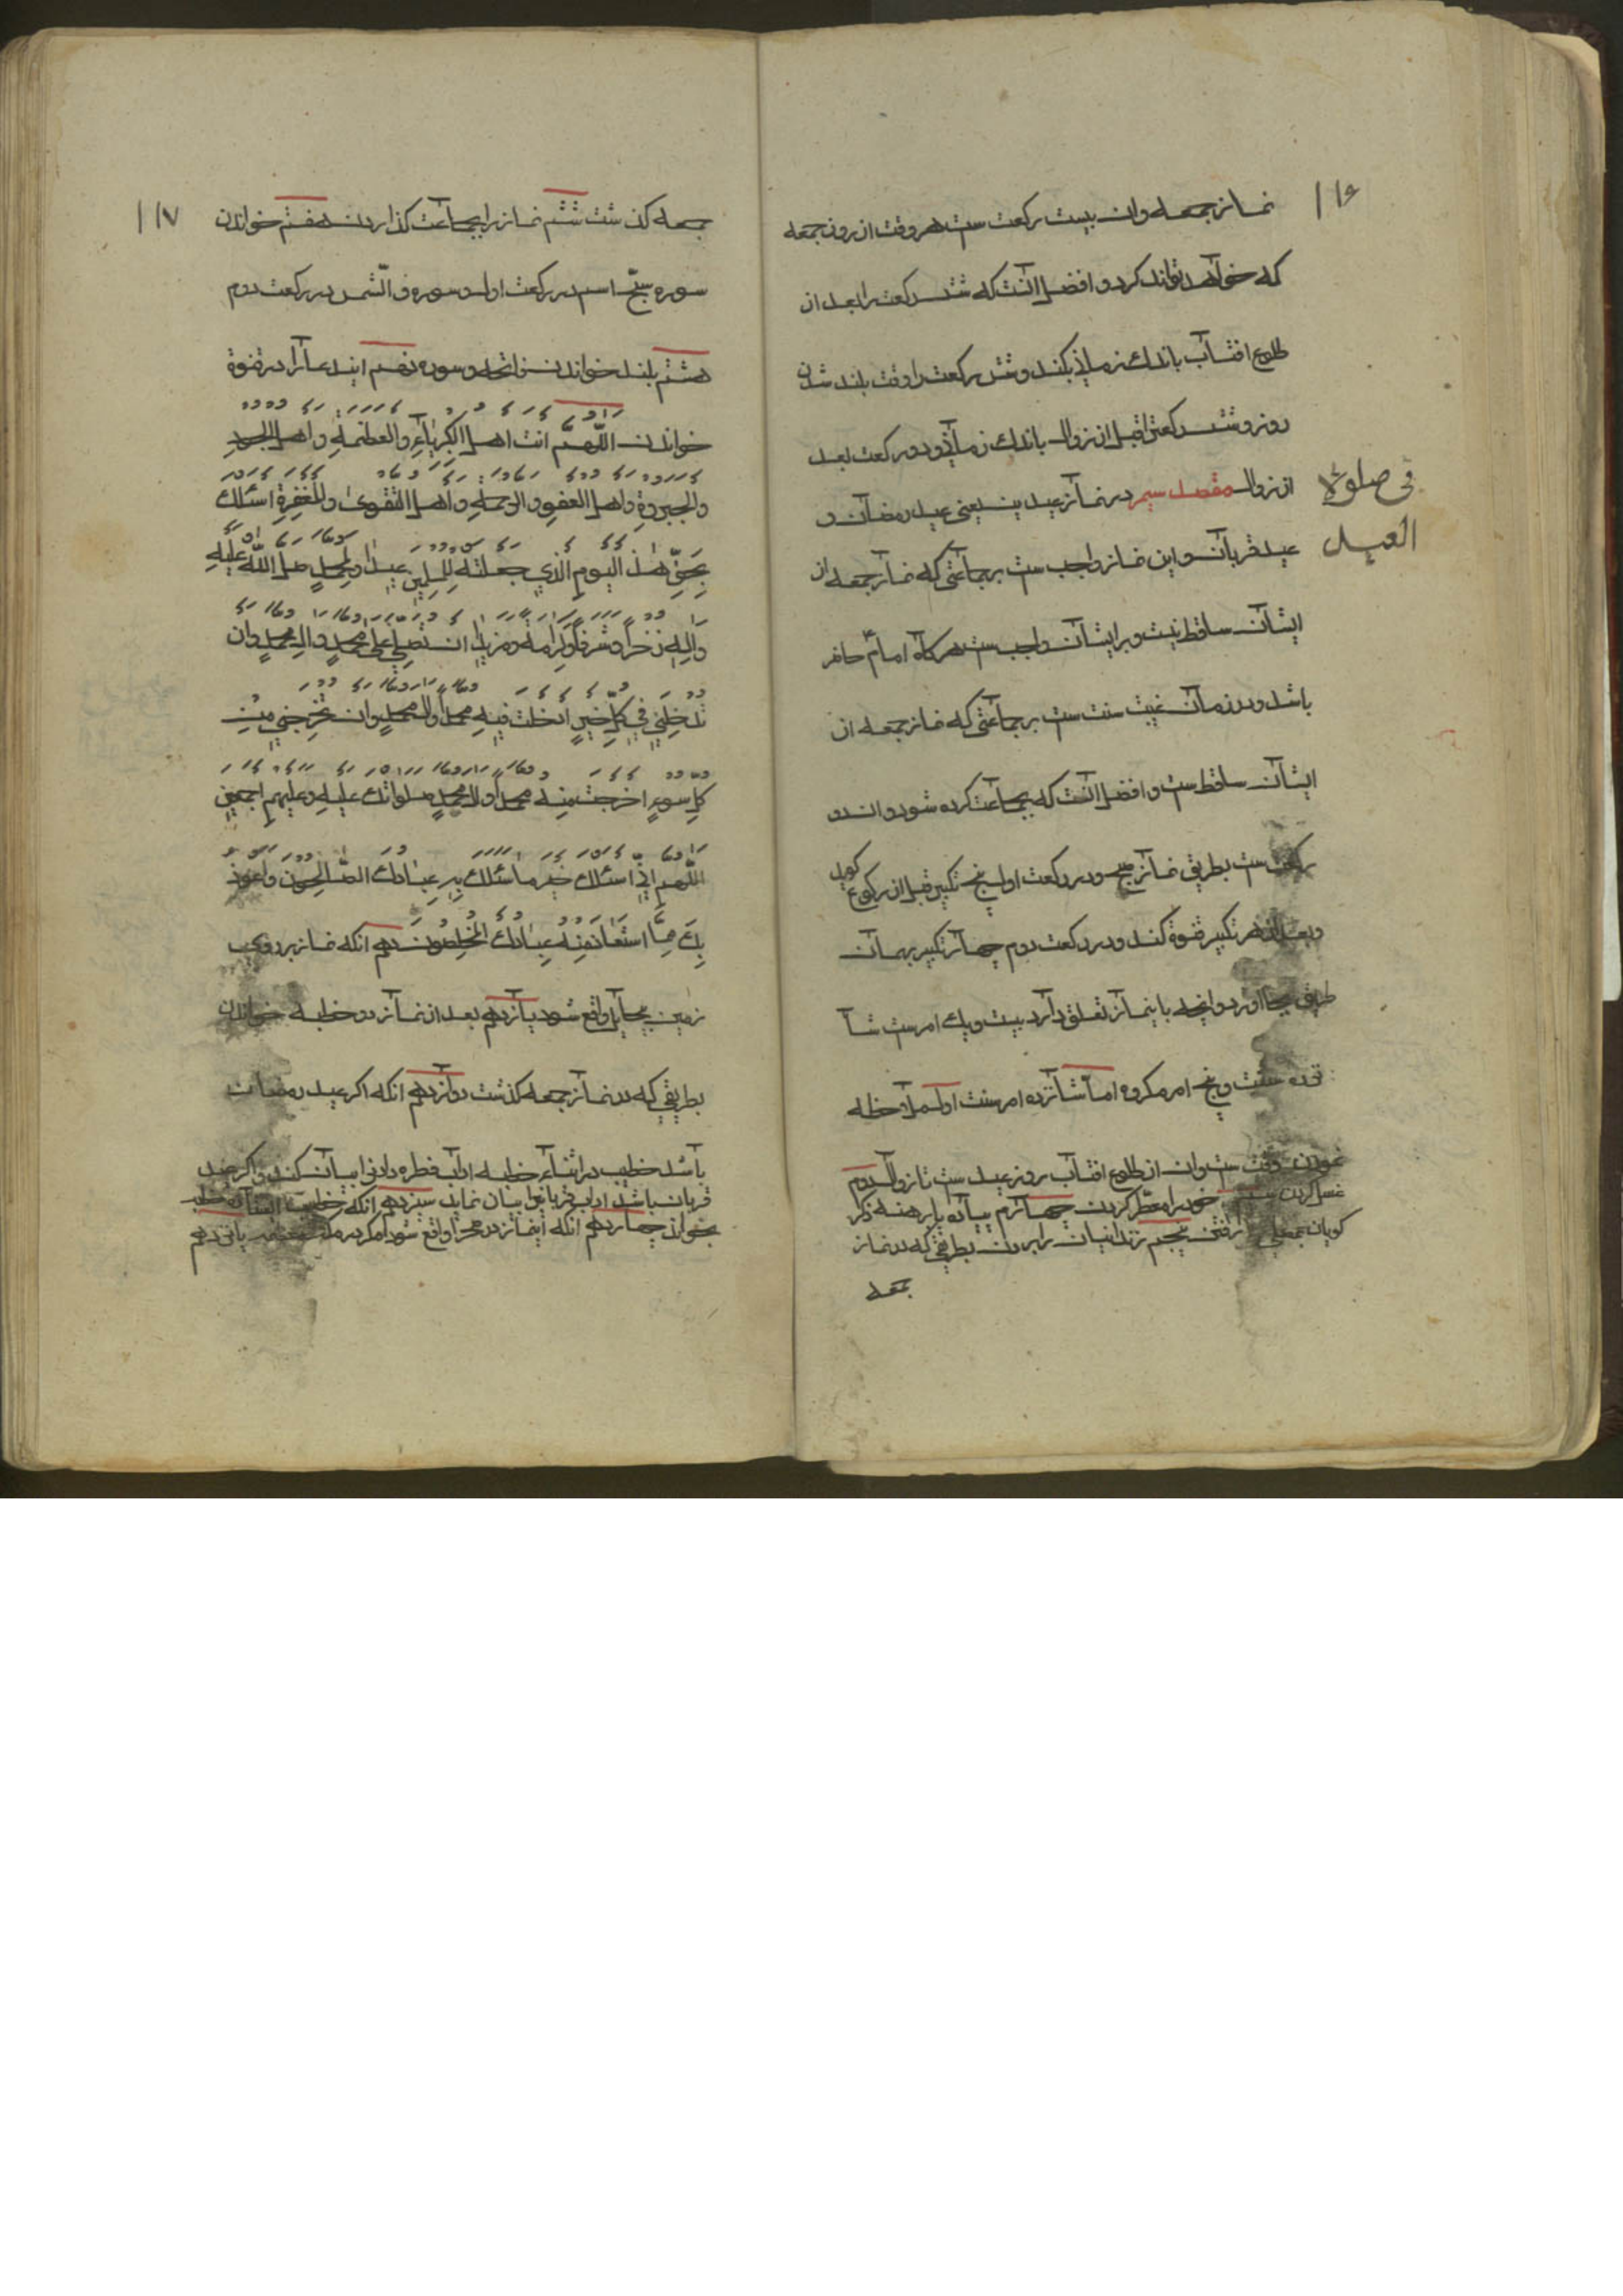 ۱۱۶
نماز جمعه وان بیست رکعت ست هر وقت از روز جمعه
که خواهد تواند کرد و افضل انست که شش رکعت را بعد از
طلوع افتاب باندک زمانی بکند و شش رکعت را وقت بلند شدن
روز و شش رکعت قبل از زوال باندک زمانی و دو رکعت بعد
از زوال مقصد سیم در نماز عیدین یعنی عید رمضان و
فی صلوة
العید
عید قربان و این نماز واجب ست بر جماعتی که نماز جمعه از
ایشان ساقط نیست و بر ایشان واجب ست هرکاه امام حاضر
باشد و در زمان غیبت سنت ست بر جماعتی که نماز جمعه از
ایشان ساقط ست و افضل انست که بجماعت کرده شود و ان دو
رکعت ست بطریق نماز صبح و در رکعت اول پنج تکبیر قبل از رکوع کوید
و بعد از هر تکبیر قنوة کند و در رکعت دوم چهار تکبیر بهمان
طریق بجا اورد و انچه باینماز تعلق دارد بیست و یک امرست شا
نزده سنت و پنج امر مکروه اما شانزده امر سنت اول ملاحظه
نمودن وقت ست وان از طلوع افتاب روز عید ست تا زوال دوم
غسل کردن سیم خود را معطر کردن چهارم پیاده پا برهنه ذکر
کویان بمصلی رفتن پنجم زندانیان را بردن بطریقی که در نماز
جمعه
۱۱۷
جمعه کذشت ششم نماز را بجماعت کذاردن هفتم خواندن
سوره سبح اسم در رکعت اول و سوره والشمس در رکعت دوم
هشتم بلند خواندن فاتحه و سوره نهم ایندعا را در قنوة
خواندن اللهم انت اهل الکبریاء والعظمة واهل الجود
والجبروة واهل العفو والرحمة واهل التقوی والمغفرة اسئلک
بحق هذا الیوم الذی جعلته للمسلمین عیدا ولمحمد صلی الله علیه
واله ذخرا وشرفا وکرامة ومزیدا ان تصلی علی محمد وال محمد وان
تدخلنی فی کل خیر ادخلت فیه محمدا وال محمد وان تخرجنی من
کل سوء اخرجت منه محمدا وال محمد صلواتک علیه وعلیهم اجمعین
اللهم انی اسئلک خیر ما سئلک به عبادک الصالحون واعوذ
بک مما استعاذ منه عبادک المخلصون دهم انکه نماز بر روی
زمین بیحایل واقع شود یازدهم بعد از نماز دو خطبه خواندن
بطریقی که در نماز جمعه کذشت دوازدهم انکه اکر عید رمضان
باشد خطیب در اثناء خطبه اداب فطره دادن را بیان کند و اکر عید
قربان باشد اداب قربانی را بیان نماید سیزدهم انکه خطیب ایستاده خطبه
بخواند چهاردهم انکه اینماز در صحرا واقع شود مکر در مکه معظمه پانزدهم